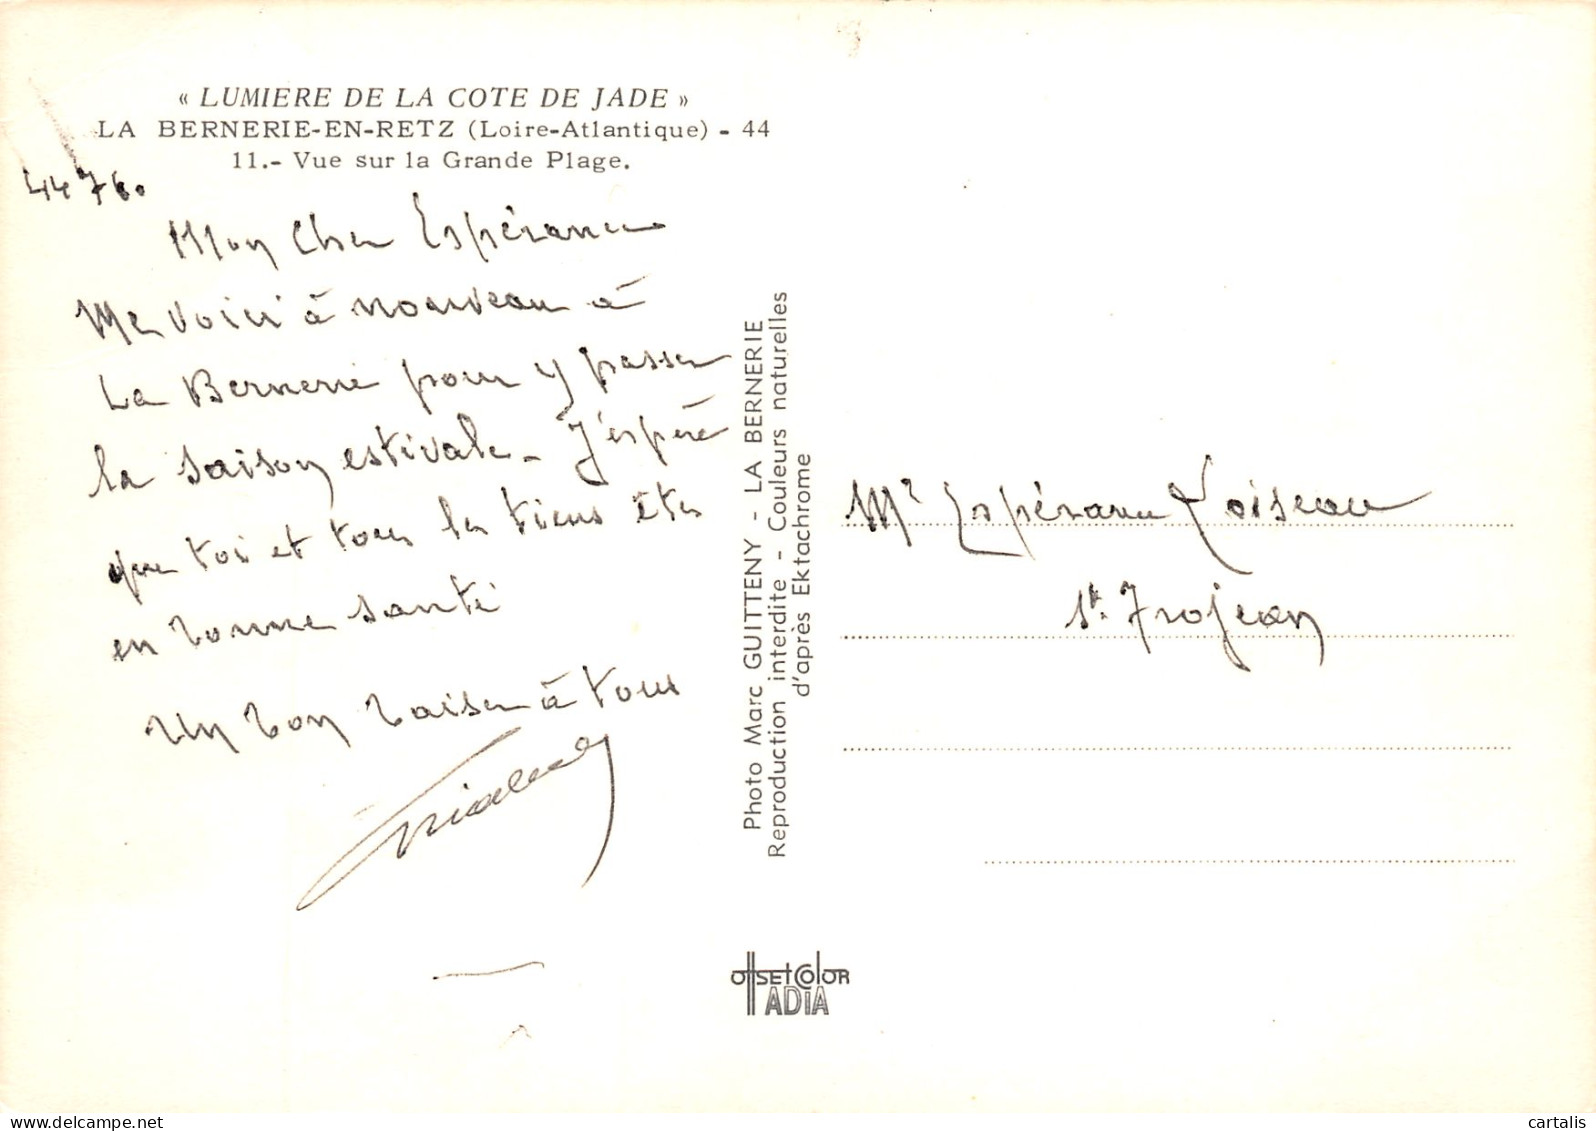 « LUMIERE DE LA COTE DE JADE »
LA BERNERIE-EN-RETZ (Loire-Atlantique) - 44
11.- Vue sur la Grande Plage.
44760
Mon Cher Espérance
Me voici à nouveau à
La Bernerie pour y passer
la saison estivale - J'espère
que toi et tous les tiens êtes
en bonne santé
Un bon baiser à tous
Photo Marc GUITTENY - LA BERNERIE
Reproduction interdite - Couleurs naturelles
d'après Ektachrome
Mr Espérance Loiseau
St. Trojean
OffsetColor
ADIA
delcampe.net
cartalis